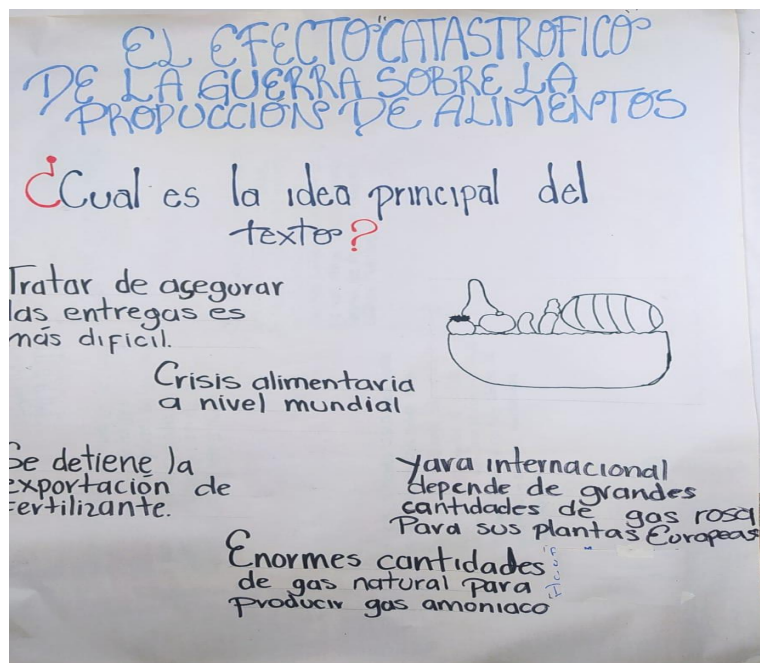 EL EFECTO "CATASTROFICO"
DE LA GUERRA SOBRE LA
PRODUCCIÓN DE ALIMENTOS
¿Cual es la idea principal del
texto?
Tratar de asegurar
las entregas es
más dificil.
Crisis alimentaria
a nivel mundial
Se detiene la
exportación de
fertilizante.
Yara internacional
depende de grandes
cantidades de gas rosa
Para sus plantas Europeas
Enormes cantidades
de gas natural para
producir gas amoniaco